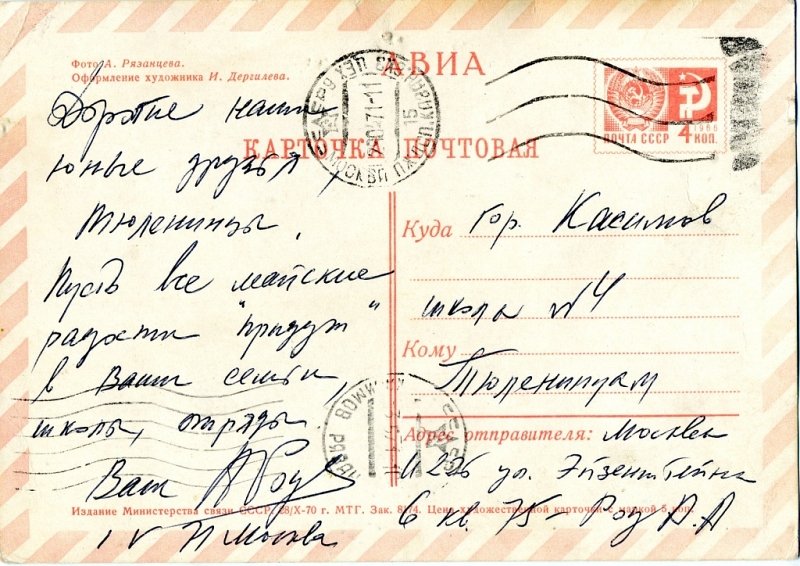 Фото А. Рязанцева.
Оформление художника И. Дергилева.
АВИА
КАРТОЧКА ПОЧТОВАЯ
ПОЧТА СССР
1966
4 КОП.
Дорогие наши
юные друзья
Тюленинцы,
Пусть все майские
радости "придут"
в Ваши семьи,
школы, отряды
Ваш
I V 71 Москва
Куда гор. Касимов
школа № 4
Кому
Тюленинцам
Адрес отправителя: Москва
И 226 ул. Эйзенштейна
6 кв. 75 –
Издание Министерства связи СССР. 28/X-70 г. МТГ. Зак. 8174. Цена художественной карточки с маркой 5 коп.